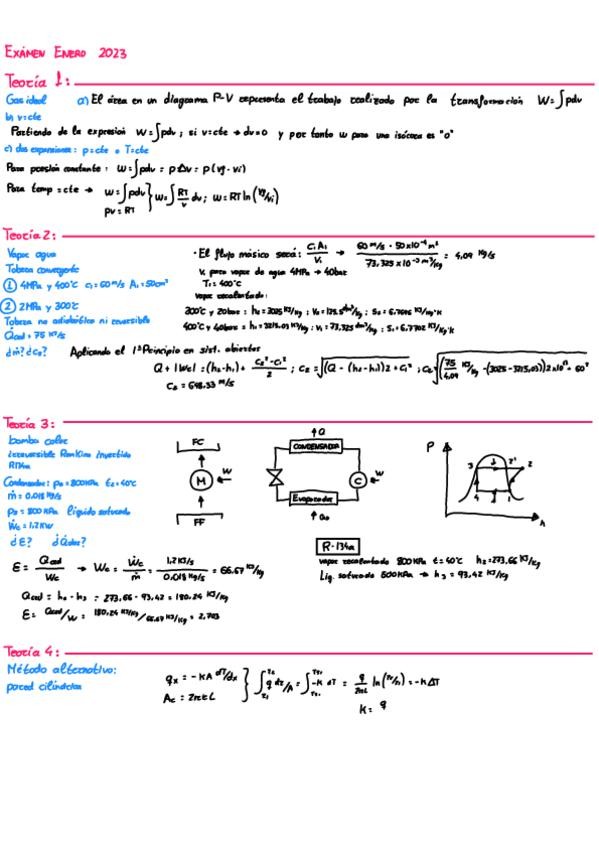 EXÁMEN ENERO 2023
Teoría 1:
Gas ideal
a) El área en un diagrama P-V representa el trabajo realizado por la transformación W=∫pdv
b) v=cte
Partiendo de la expresión W=∫pdv; si v=cte → dv=0 y por tanto w para una isócora es "0"
c) dos expansiones: p=cte o T=cte
Para presión constante: w=∫pdv = pΔv = p(vf-vi)
Para temp=cte → w=∫pdv } w=∫RT/v dv; w=RT ln(vf/vi)
pv=RT
Teoría 2:
Vapor agua
Tobera convergente
① 4MPa y 400℃ c₁=60m/s A₁=50cm²
② 2MPa y 300℃
Tobera no adiabática ni reversible
Q̇ced=75 KJ/s
¿ṁ? ¿c₂?
• El flujo másico será: C₁A₁/V₁ → 60 m/s · 50x10⁻⁴ m² / 73,325 x10⁻³ m³/kg = 4,09 kg/s
V₁ para vapor de agua 4MPa → 40bar
T₁=400℃
Vapor recalentado:
Aplicando el 1ºPrincipio en sist. abiertos
Q + |Wc| = (h₂-h₁) + C₂²-C₁²/2; C₂=√(Q-(h₂-h₁))2+C₁²
C₂ = 648.33 m/s
Teoría 3:
bomba calor
irreversible Rankine invertido
R134a
Condensador: p₂=800KPa t₂=40℃
ṁ=0.018 kg/s
p₃=800 KPa líquido saturado
Ẇc=1,2KW
¿E?
FC
M
W
FF
↑Q
CONDENSADOR
C
W
Evaporador
P
3
2' 2
4 1
h
R-134a
vapor recalentado 800KPa t=40℃ h₂=273,66 KJ/kg
h₃=93,42 KJ/kg
E = Qced/Wc → Wc = Ẇc/ṁ = 1,2KJ/s / 0.018 kg/s = 66.67 KJ/kg
Qced = h₂-h₃ = 273,66 - 93,42 = 180.24 KJ/kg
E = Qced/W = 180,24 KJ/kg / 66.67 KJ/kg = 2,703
Teoría 4:
Método alternativo:
pared cilíndrica
qx = -KA dT/dx
K= q